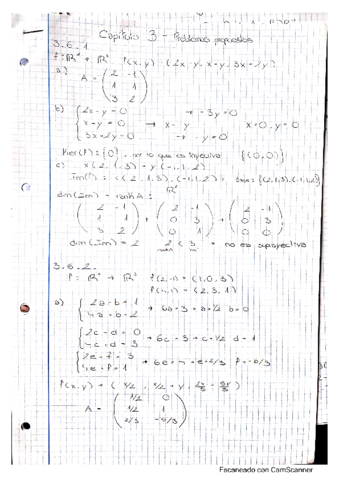 Capítulo 3 - Problemas propuestos
3.6.1
f: ℝ² → ℝ³ f(x,y) = (2x-y, x+y, 3x+2y)
a) A = (2 -1
1 1
3 2)
b) { 2x-y=0 → -3y=0
x+y=0 → x=-y x=0, y=0
3x+2y=0 → -y=0
Ker(f) = {0}, por lo que es inyectiva {(0,0)}
c) x(2,1,3) + y(-1,1,2)
Im(f) = <(2,1,3), (-1,1,2)> base = {(2,1,3), (-1,1,2)}
dim(Im) = rank A =
(2 -1 (2 -1 (2 -1
1 1 0 3 0 3
3 2) 0 1) 0 0)
dim(Im) = 2 2 < 3 → no es suprayectiva
3.6.2
f: ℝ² → ℝ³ f(2,-1) = (1,0,3)
f(4,1) = (2,3,1)
a) { 2a-b=1
4a+b=2 → 6a=3 → a=1/2 b=0
{ 2c-d=0
4c+d=3 → 6c=3 → c=1/2 d=1
{ 2e-f=3
4e+f=1 → 6e=4 → e=2/3 f=-5/3
f(x,y) = (x/2, x/2+y, 2x/3-5y/3)
A = (1/2 0
1/2 1
2/3 -5/3)
Escaneado con CamScanner